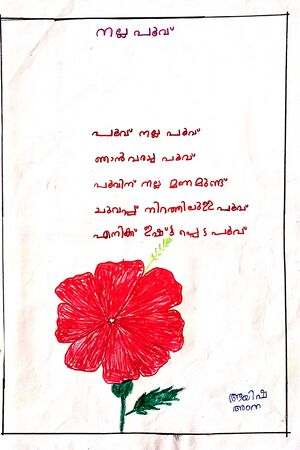 നല്ല പൂവ്
പൂവ് നല്ല പൂവ്
ഞാൻ വരച്ച പൂവ്
പൂവിന് നല്ല മണമുണ്ട്
ചുവപ്പ് നിറത്തിലുള്ള പൂവ്
എനിക്ക് ഇഷ്ടപ്പെട്ട പൂവ്
ആയിഷ